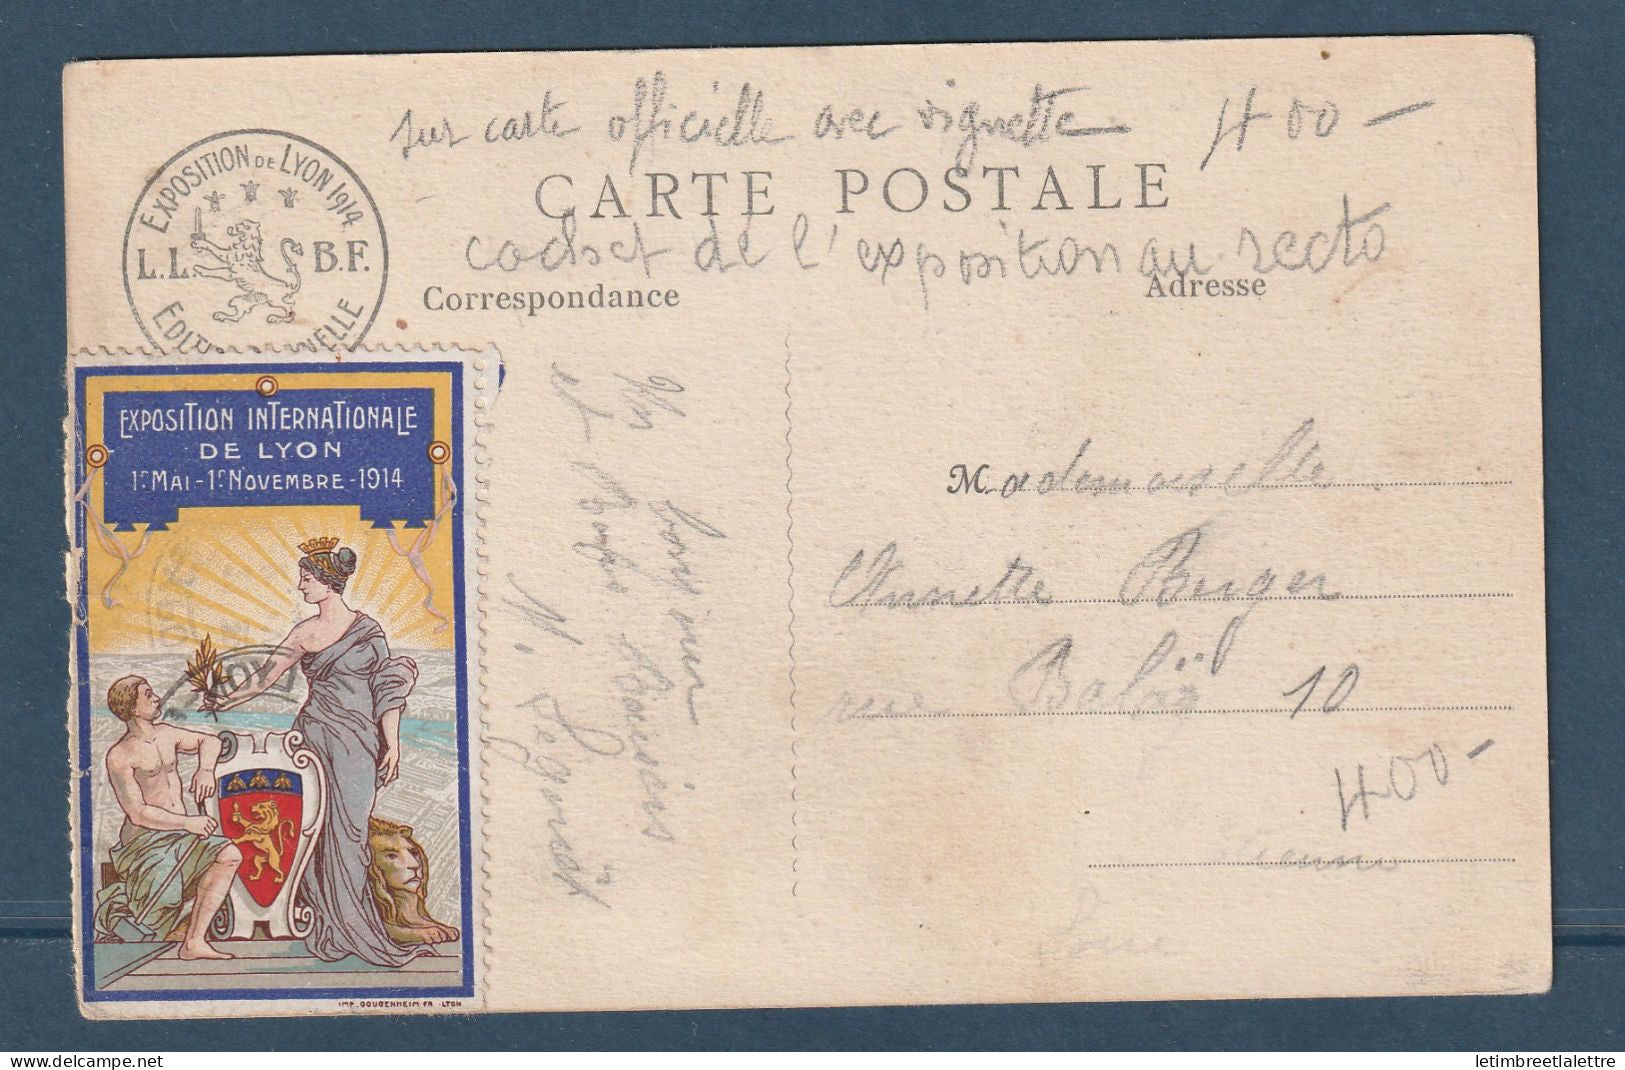 sur carte officielle avec vignette 400-
EXPOSITION DE LYON 1914
L.L. B.F.
CARTE POSTALE
cachet de l'exposition au recto
Correspondance
Adresse
EXPOSITION INTERNATIONALE
DE LYON
1er MAI - 1er NOVEMBRE - 1914
IMP. GOUGENHEIM FR. LYON
Un bonjour
et
N.
Mademoiselle
Annette Berger
rue Balaÿ 10
400-
letimbreetlalettre